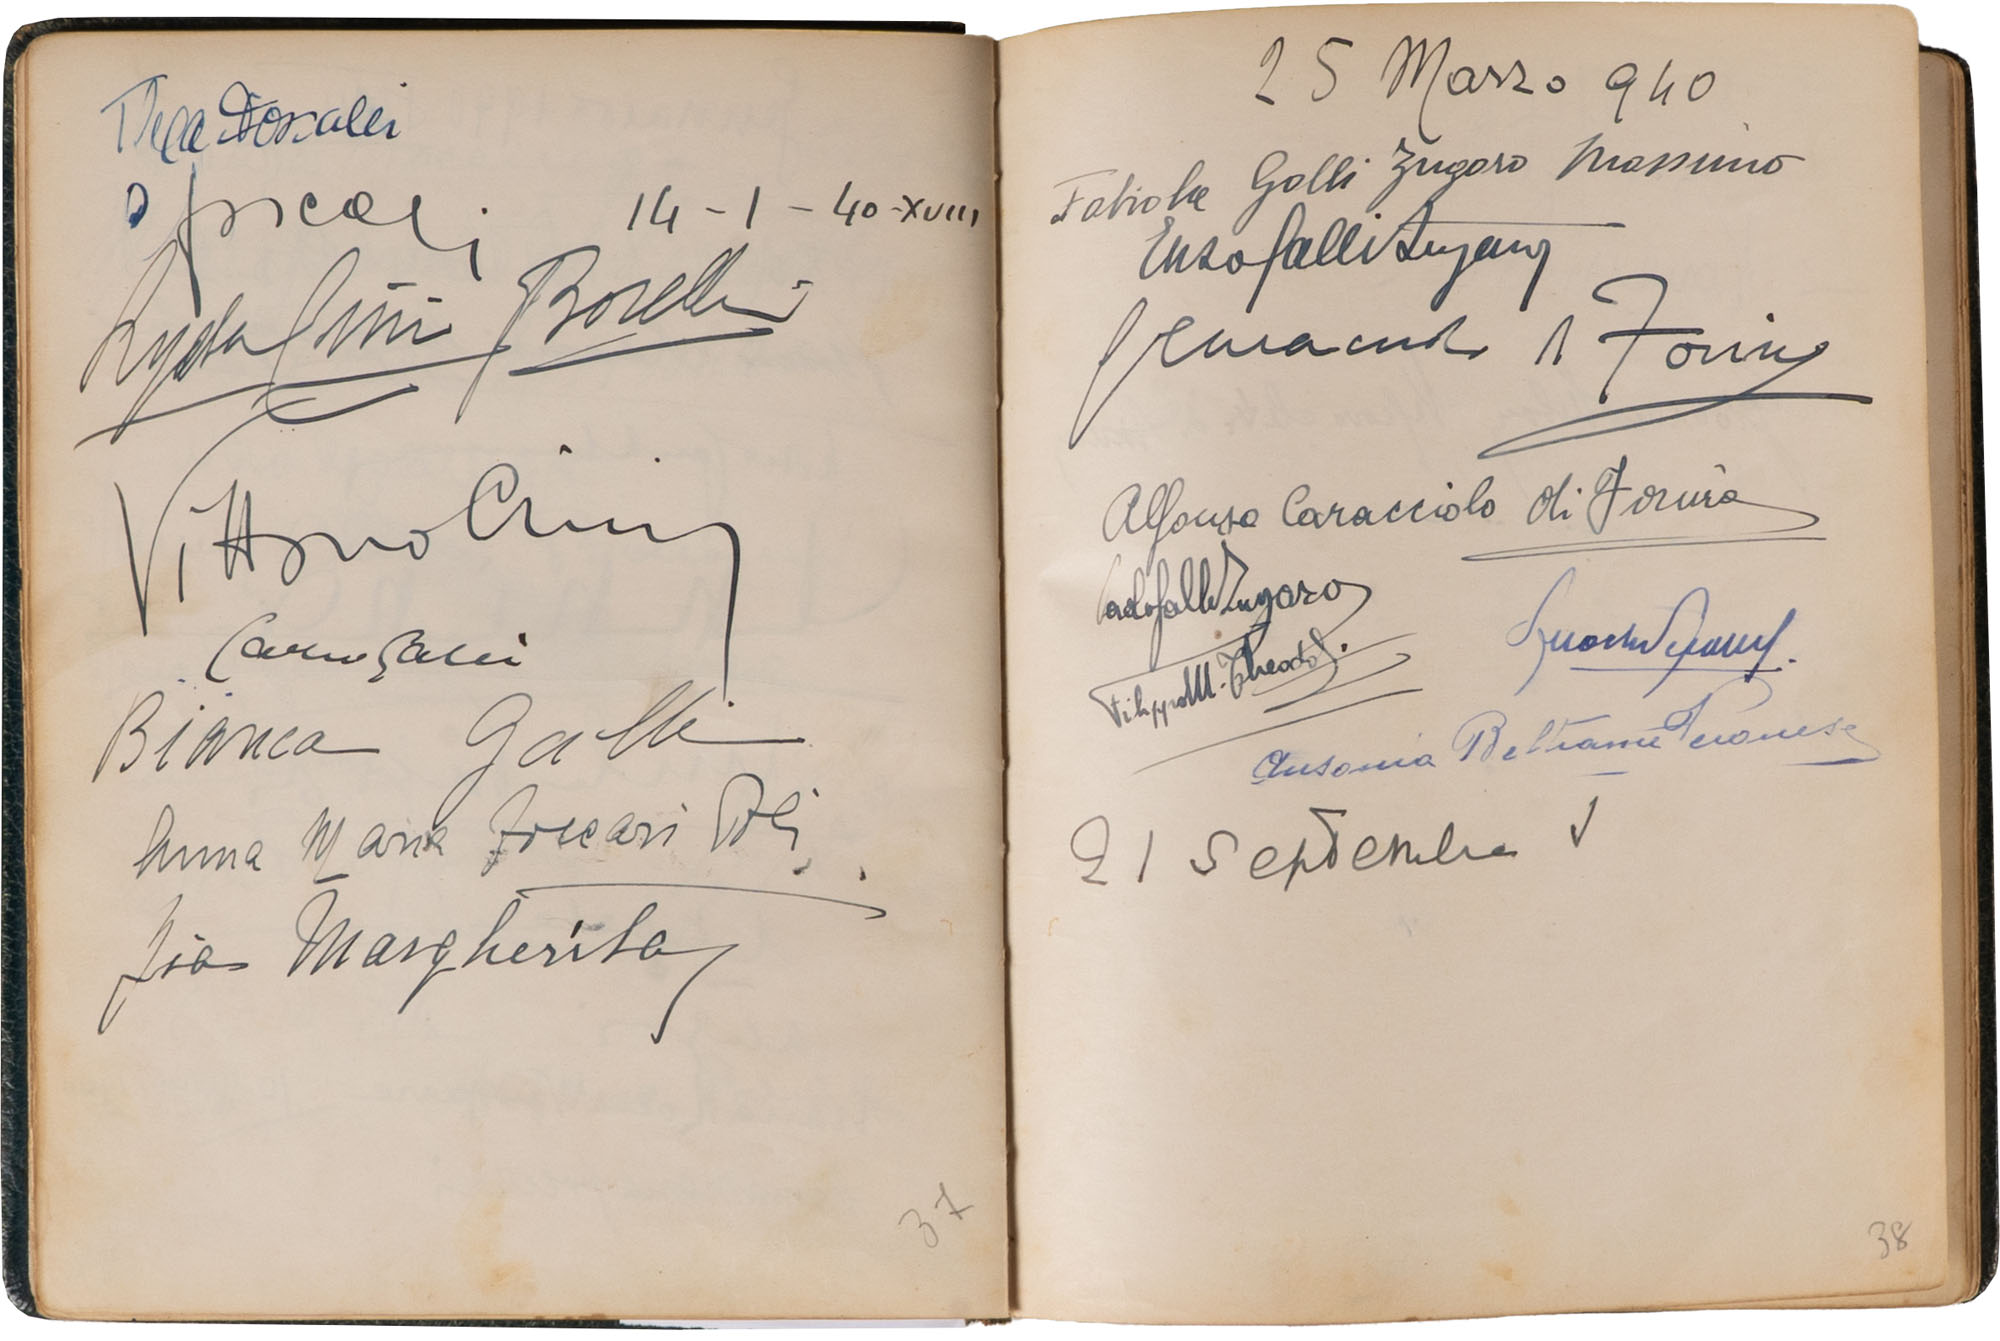 Foscari
14-1-40-XVIII
Lyda Cini Borelli
Vittorio Cini
Bianca Galli
Anna Maria Foscari
Zia Margherita
37
25 Marzo 940
Fabiola Galli Zugaro Massimo
Enzo Galli Zugaro
di Forino
Alfonso Caracciolo di Forino
Galli Zugaro
Filippo M. Theodoli
Ausonia Beltrami Veronese
21 Septembre
38